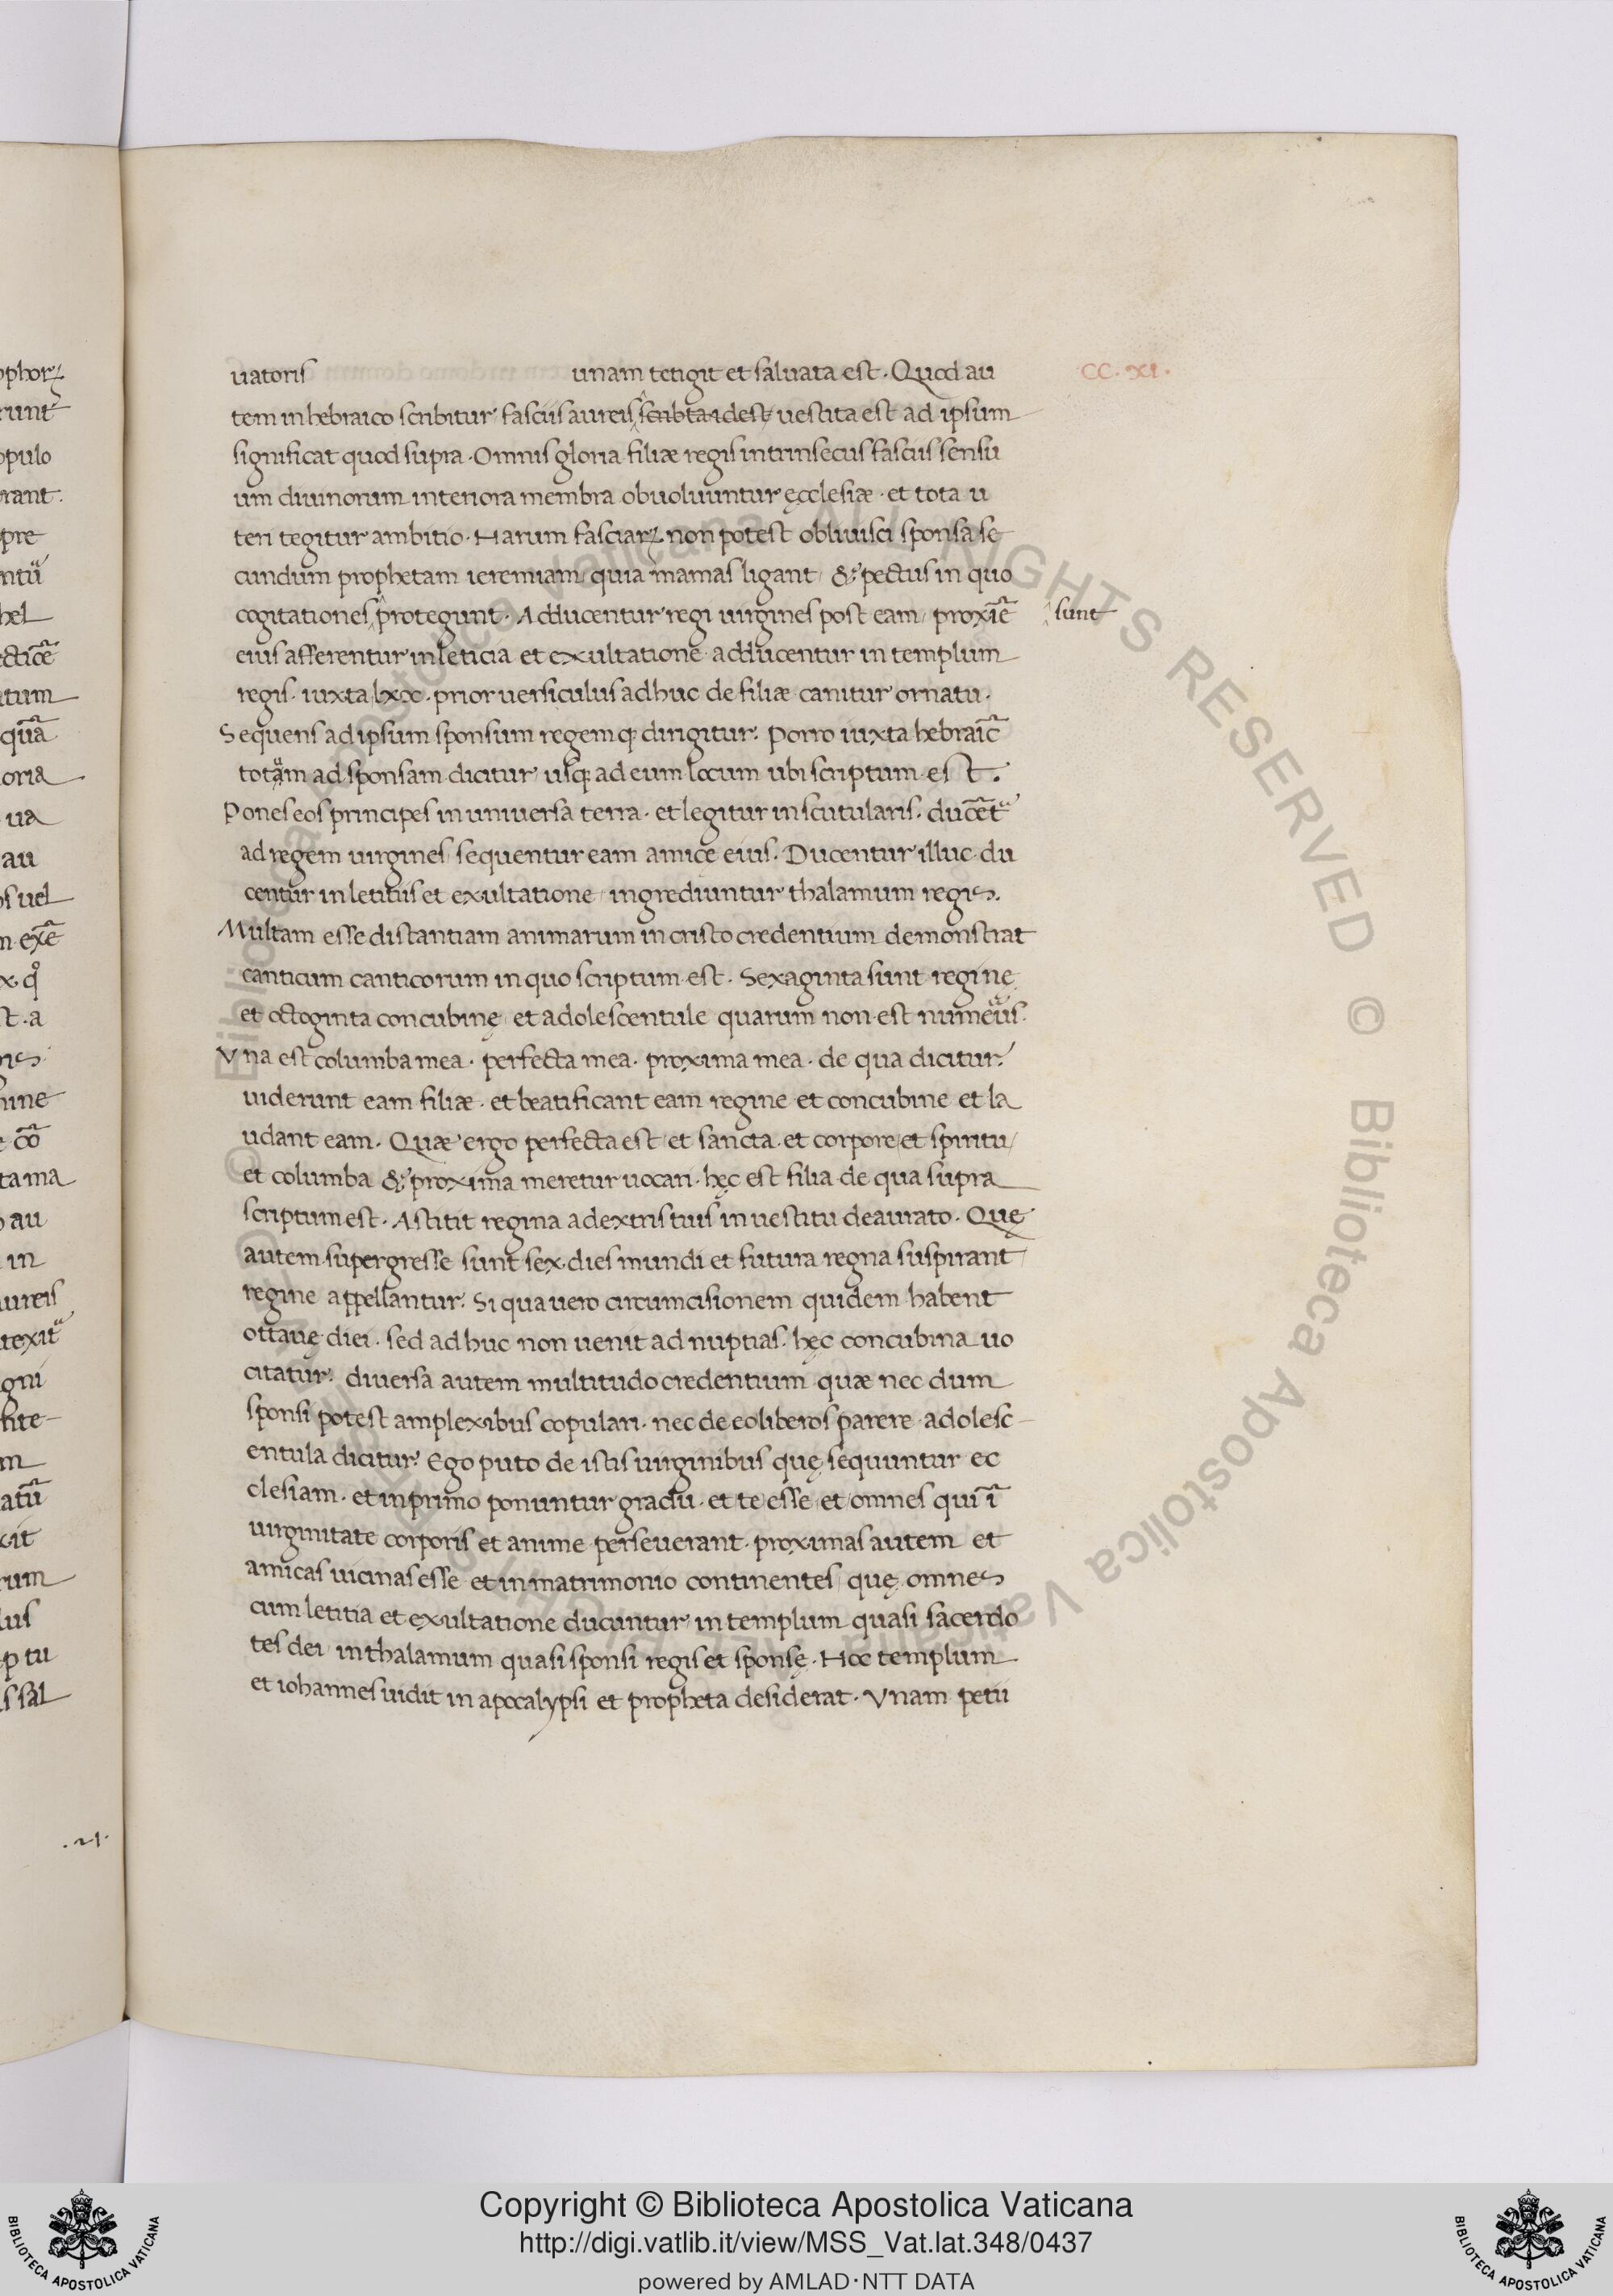 CC·XI·
uatoris unam tetigit et saluata est. Quod au
tem in hebraico scribitur fasciis aureis scribta idest uestita est ad ipsum
significat quod supra. Omnis gloria filiæ regis intrinsecus fasciis sensu
um diuinorum interiora membra obuoluuntur ęcclesiæ. et tota u
teri tegitur ambitio. Harum fasciarꝝ non potest obliuisci sponsa se
cundum prophetam ieremiam quia mamas ligant & pectus in quo
cogitationes protegunt. Adducentur regi uirgines post eam proxīe
sunt
eius afferentur in leticia et exultatione adducentur in templum
regis. iuxta lxx. prior uersiculus adhuc de filiæ canitur ornatu.
Sequens ad ipsum sponsum regemq; dirigitur. Porro iuxta hebraic̄
totam ad sponsam dicitur usq; ad eum locum ubi scriptum est.
Pones eos principes in uniuersa terra. et legitur in scutularis. ducēt
ad regem uirgines sequentur eam amice eius. Ducentur illuc du
centur in letitiis et exultatione ingrediuntur thalamum regis.
Multam esse distantiam animarum in cristo credentium demonstrat
canticum canticorum in quo scriptum est. Sexaginta sunt regine
et octoginta concubinę et adolescentule quarum non est numeus.
Vna est columba mea. perfecta mea. proxima mea. de qua dicitur.
uiderunt eam filiæ. et beatificant eam regine et concubine et la
udant eam. Quæ ergo perfecta est et sancta et corpore et spiritu
et columba & proxima meretur uocari. hęc est filia de qua supra
scriptum est. Astitit regina a dextris tuis in uestitu deaurato. Quę
autem supergresse sunt sex dies mundi et futura regna suspirant
regine appellantur. Si qua uero circumcisionem quidem habent
ottauę diei. sed ad huc non uenit ad nuptias. hęc concubina uo
citatur. diuersa autem multitudo credentium quæ nec dum
sponsi potest amplexibus copulari. nec de eo liberos parere adolesc
entula dicitur. Ego puto de istis uirginibus quę sequuntur ec
clesiam. et in primo ponuntur gradu. et te esse et omnes qui ī
uirginitate corporis et anime perseuerant. proximas autem et
amicas uicinas esse et in matrimonio continentes quę omnes
cum letitia et exultatione ducuntur in templum quasi sacerdo
tes dei in thalamum quasi sponsi regis et sponsę. Hoc templum
et iohannes uidit in apocalypsi et propheta desiderat. Vnam petii
Copyright © Biblioteca Apostolica Vaticana
http://digi.vatlib.it/view/MSS_Vat.lat.348/0437
powered by AMLAD·NTT DATA
BIBLIOTECA APOSTOLICA VATICANA
BIBLIOTECA APOSTOLICA VATICANA